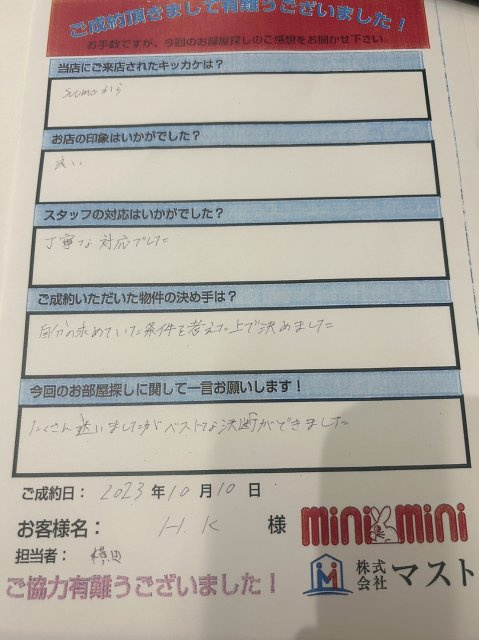 ご成約頂きまして有難うございました！
お手数ですが、今回のお部屋探しのご感想をお聞かせ下さい
当店にご来店されたキッカケは？
suumoから
お店の印象はいかがでした？
良い
スタッフの対応はいかがでした？
丁寧な対応でした
ご成約いただいた物件の決め手は？
自分の求めていた条件を考えた上で決めました
今回のお部屋探しに関して一言お願いします！
たくさん迷いましたがベストな決断ができました
ご成約日： 2023 年 10 月 10 日
お客様名： H.K 様
mini mini
担当者：
株式会社 マスト
ご協力有難うございました！